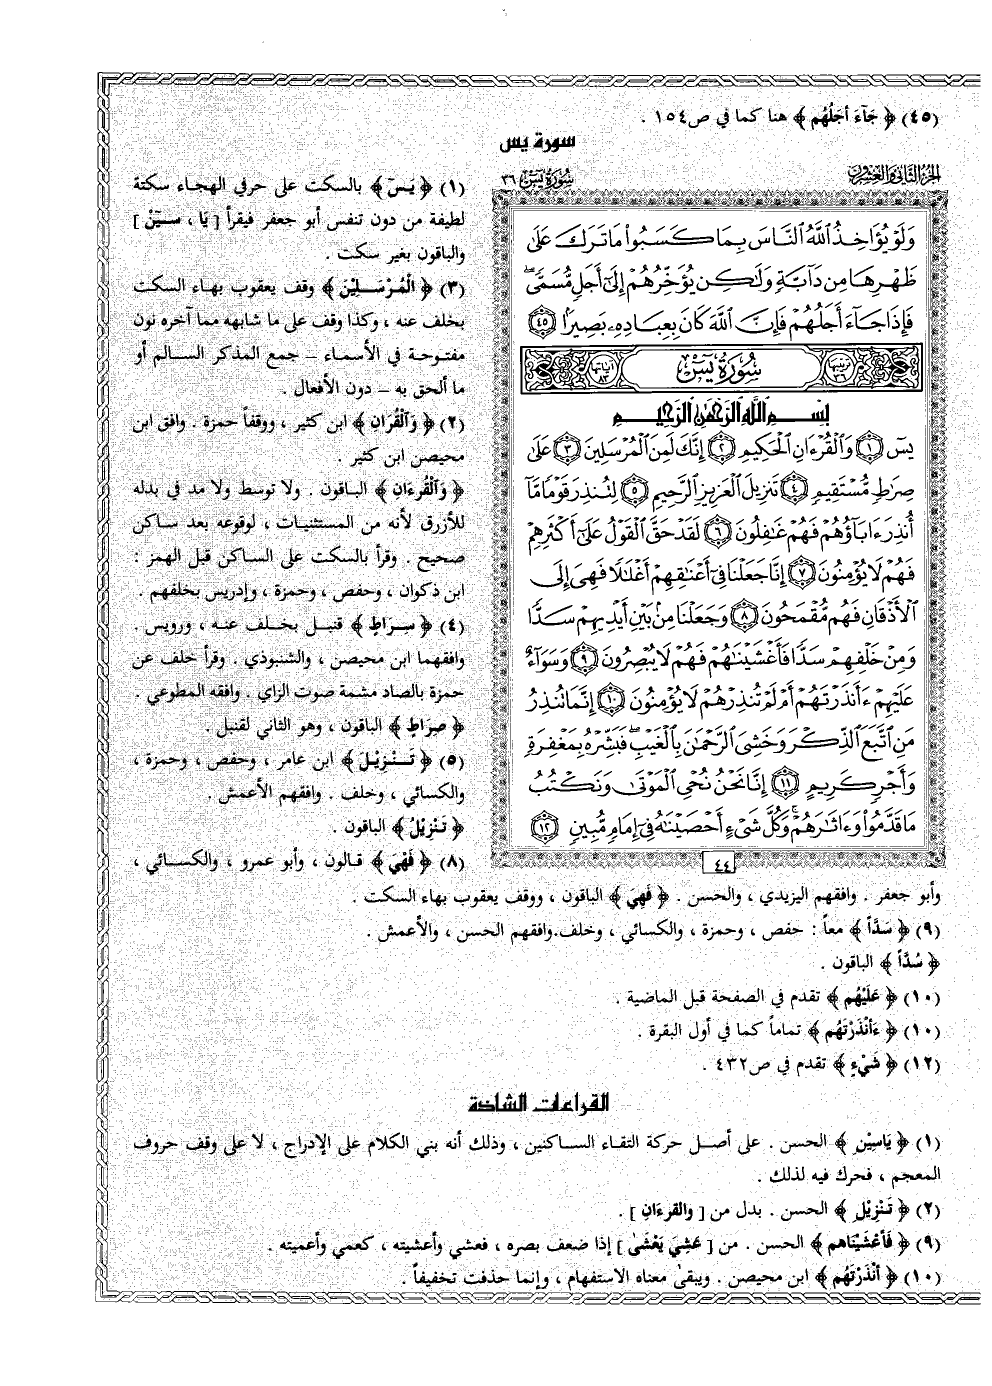 (٤٥) ﴿ جَآءَ أَجَلُهُم ﴾ هنا كما في ص١٥٤ .
سورة يس
الجزء الثاني والعشرون
سورة يس ٣٦
وَلَوْ يُؤَاخِذُ ٱللَّهُ ٱلنَّاسَ بِمَا كَسَبُوا۟ مَا تَرَكَ عَلَىٰ
ظَهْرِهَا مِن دَآبَّةٍ وَلَٰكِن يُؤَخِّرُهُمْ إِلَىٰٓ أَجَلٍ مُّسَمًّى ۖ
فَإِذَا جَآءَ أَجَلُهُمْ فَإِنَّ ٱللَّهَ كَانَ بِعِبَادِهِۦ بَصِيرًۢا ٤٥
ترتيبها ٣٦ سُورَةُ يسٓ آياتها ٨٣
بِسْمِ ٱللَّهِ ٱلرَّحْمَٰنِ ٱلرَّحِيمِ
يسٓ ١ وَٱلْقُرْءَانِ ٱلْحَكِيمِ ٢ إِنَّكَ لَمِنَ ٱلْمُرْسَلِينَ ٣ عَلَىٰ
صِرَٰطٍ مُّسْتَقِيمٍ ٤ تَنزِيلَ ٱلْعَزِيزِ ٱلرَّحِيمِ ٥ لِتُنذِرَ قَوْمًا مَّآ
أُنذِرَ ءَابَآؤُهُمْ فَهُمْ غَٰفِلُونَ ٦ لَقَدْ حَقَّ ٱلْقَوْلُ عَلَىٰٓ أَكْثَرِهِمْ
فَهُمْ لَا يُؤْمِنُونَ ٧ إِنَّا جَعَلْنَا فِىٓ أَعْنَٰقِهِمْ أَغْلَٰلًا فَهِىَ إِلَى
ٱلْأَذْقَانِ فَهُم مُّقْمَحُونَ ٨ وَجَعَلْنَا مِنۢ بَيْنِ أَيْدِيهِمْ سَدًّا
وَمِنْ خَلْفِهِمْ سَدًّا فَأَغْشَيْنَٰهُمْ فَهُمْ لَا يُبْصِرُونَ ٩ وَسَوَآءٌ
عَلَيْهِمْ ءَأَنذَرْتَهُمْ أَمْ لَمْ تُنذِرْهُمْ لَا يُؤْمِنُونَ ١٠ إِنَّمَا تُنذِرُ
مَنِ ٱتَّبَعَ ٱلذِّكْرَ وَخَشِىَ ٱلرَّحْمَٰنَ بِٱلْغَيْبِ ۖ فَبَشِّرْهُ بِمَغْفِرَةٍ
وَأَجْرٍ كَرِيمٍ ١١ إِنَّا نَحْنُ نُحْىِ ٱلْمَوْتَىٰ وَنَكْتُبُ
مَا قَدَّمُوا۟ وَءَاثَٰرَهُمْ ۚ وَكُلَّ شَىْءٍ أَحْصَيْنَٰهُ فِىٓ إِمَامٍ مُّبِينٍ ١٢
٤٤
(١) ﴿ يَسَ ﴾ بالسكت على حرفي الهجاء سكتة
لطيفة من دون تنفس أبو جعفر فيقرأ [ يَا ، سِيْنْ ]
والباقون بغير سكت .
(٣) ﴿ الْمُرْسَلِيْنَ ﴾ وقف يعقوب بهاء السكت
بخلف عنه ، وكذا وقف على ما شابهه مما آخره نون
مفتوحة في الأسماء – جمع المذكر السالم أو
ما ألحق به – دون الأفعال .
(٢) ﴿ وَالْقُرَانِ ﴾ ابن كثير ، ووقفاً حمزة . وافق ابن
محيصن ابن كثير .
﴿ وَالْقُرءَانِ ﴾ الباقون . ولا توسط ولا مد في بدله
للأزرق لأنه من المستثنيات ، لوقوعه بعد ساكن
صحيح . وقرأ بالسكت على الساكن قبل الهمز :
ابن ذكوان ، وحفص ، وحمزة ، وإدريس بخلفهم .
(٤) ﴿ سِرَاطٍ ﴾ قنبل بخلف عنه ، ورويس .
وافقهما ابن محيصن ، والشنبوذي . وقرأ خلف عن
حمزة بالصاد مشمة صوت الزاي . وافقه المطوعي .
﴿ صِرَاطٍ ﴾ الباقون ، وهو الثاني لقنبل .
(٥) ﴿ تَنْزِيْلَ ﴾ ابن عامر ، وحفص ، وحمزة ،
والكسائي ، وخلف . وافقهم الأعمش .
﴿ تَنْزِيْلُ ﴾ الباقون .
(٨) ﴿ فَهْيَ ﴾ قالون ، وأبو عمرو ، والكسائي ،
وأبو جعفر . وافقهم اليزيدي ، والحسن . ﴿ فَهِيَ ﴾ الباقون ، ووقف يعقوب بهاء السكت .
(٩) ﴿ سَدًّا ﴾ معاً : حفص ، وحمزة ، والكسائي ، وخلف.وافقهم الحسن ، والأعمش .
﴿ سُدًّا ﴾ الباقون .
(١٠) ﴿ عَلَيْهُم ﴾ تقدم في الصفحة قبل الماضية .
(١٠) ﴿ ءَأَنْذَرْتَهُم ﴾ تماماً كما في أول البقرة .
(١٢) ﴿ شَيْءٍ ﴾ تقدم في ص٤٣٢ .
القراءات الشاذة
(١) ﴿ يَاسِيْنِ ﴾ الحسن . على أصل حركة التقاء الساكنين ، وذلك أنه بني الكلام على الإدراج ، لا على وقف حروف
المعجم ، فحرك فيه لذلك .
(٢) ﴿ تَنْزِيْلِ ﴾ الحسن . بدل من [ والقرءَانِ ] .
(٩) ﴿ فَأَعْشَيْنَاهم ﴾ الحسن . من [ عَشِيَ يَعْشَى ] إذا ضعف بصره ، فعشي وأعشيته ، كعمي وأعميته .
(١٠) ﴿ أَنْذَرْتَهُم ﴾ ابن محيصن . ويبقى معناه الاستفهام ، وإنما حذفت تخفيفاً .